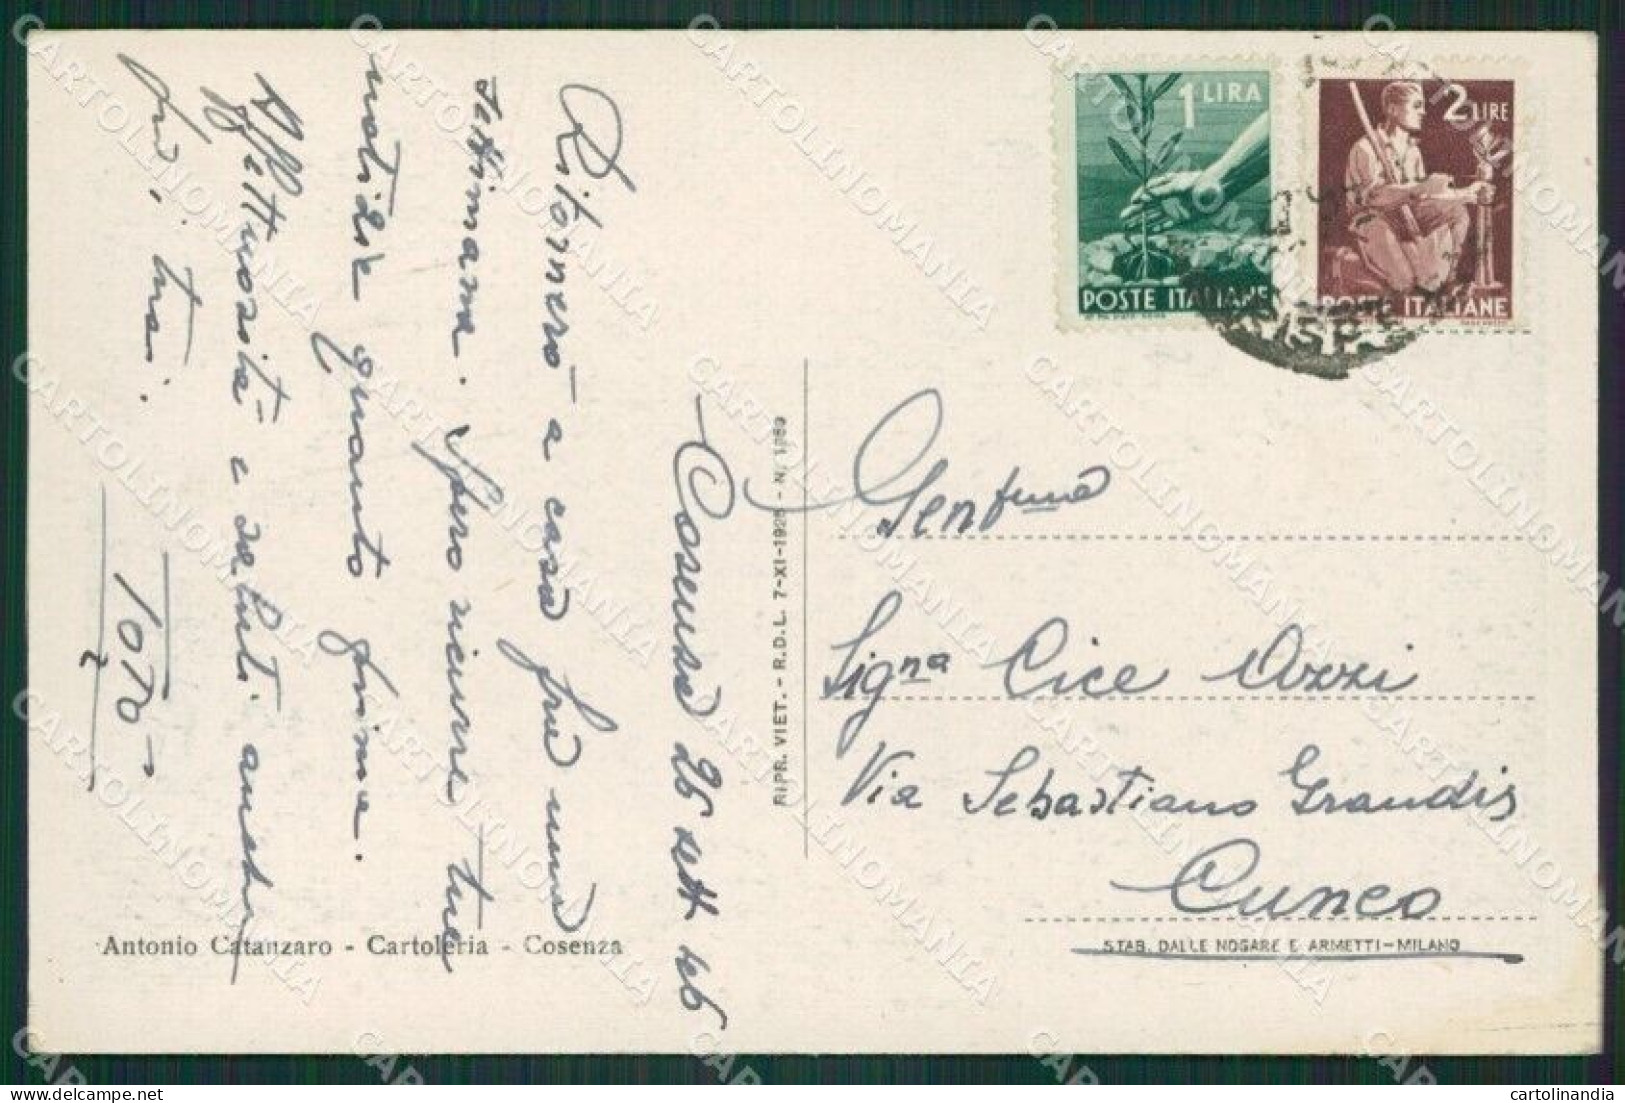 Cosenza 26 sett
Ritornerò a casa fra una
settimana. Spero ricevere tue
notizie quanto prima.
Affettuosità e saluti anche
tuoi.
TOTÒ
Antonio Catanzaro - Cartoleria - Cosenza
RIPR. VIET. - R.D.L. 7-XI-1925 - N.
1 LIRA
POSTE ITALIANE
2 LIRE
POSTE ITALIANE
Gent.ma
Sig.na Cice Ozzi
Via Sebastiano Grandis
Cuneo
STAB. DALLE NOGARE E ARMETTI-MILANO
CARTOLINOMANIA
cartolinandia